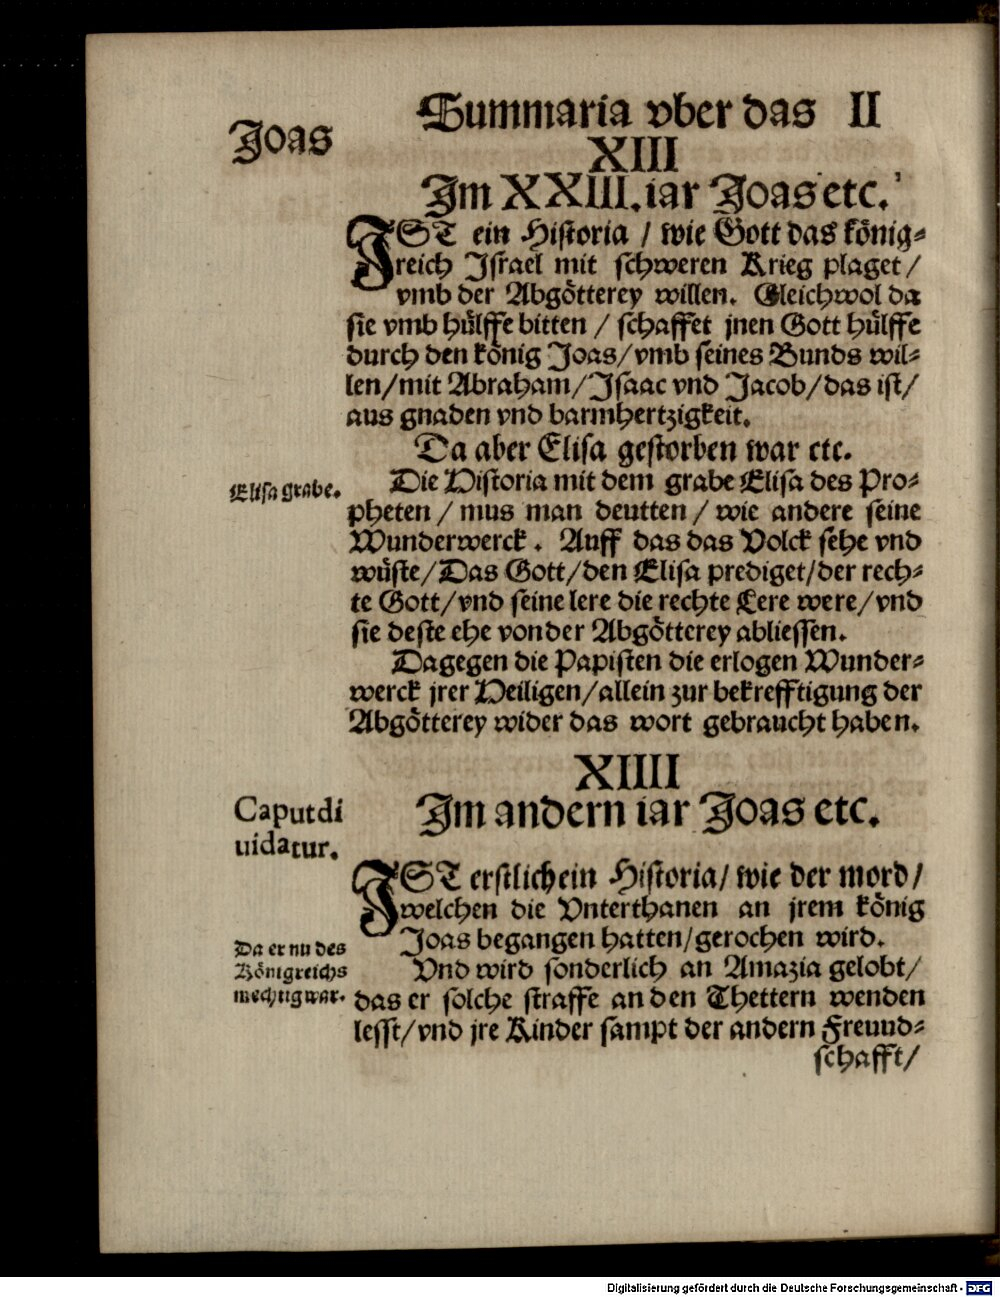 Summaria vber das II
Joas
XIII
Jm XXIII. iar Joas etc.
JST ein Historia / wie Gott das könig-
reich Jsrael mit schweren Krieg plaget /
vmb der Abgötterey willen. Gleichwol da
sie vmb hülffe bitten / schaffet jnen Gott hülffe
durch den könig Joas / vmb seines Bunds wil-
len / mit Abraham / Jsaac vnd Jacob / das ist /
aus gnaden vnd barmhertzigkeit.
Da aber Elisa gestorben war etc.
Elisa grabe.
Die Historia mit dem grabe Elisa des Pro-
pheten / mus man deutten / wie andere seine
Wunderwerck. Auff das das Volck sehe vnd
wüste / Das Gott / den Elisa prediget / der rech-
te Gott / vnd seine lere die rechte Lere were / vnd
sie deste ehe von der Abgötterey abliessen.
Dagegen die Papisten die erlogen Wunder-
werck jrer Heiligen / allein zur bekrefftigung der
Abgötterey wider das wort gebraucht haben.
XIIII
Jm andern iar Joas etc.
Caput di
uidatur.
JST erstlich ein Historia / wie der mord /
welchen die Vnterthanen an jrem könig
Joas begangen hatten / gerochen wird.
Da er nu des
Königreichs
mechtig war.
Vnd wird sonderlich an Amazia gelobt /
das er solche straffe an den Thettern wenden
lesst / vnd jre Kinder sampt der andern Freund-
schafft /
Digitalisierung gefördert durch die Deutsche Forschungsgemeinschaft - DFG